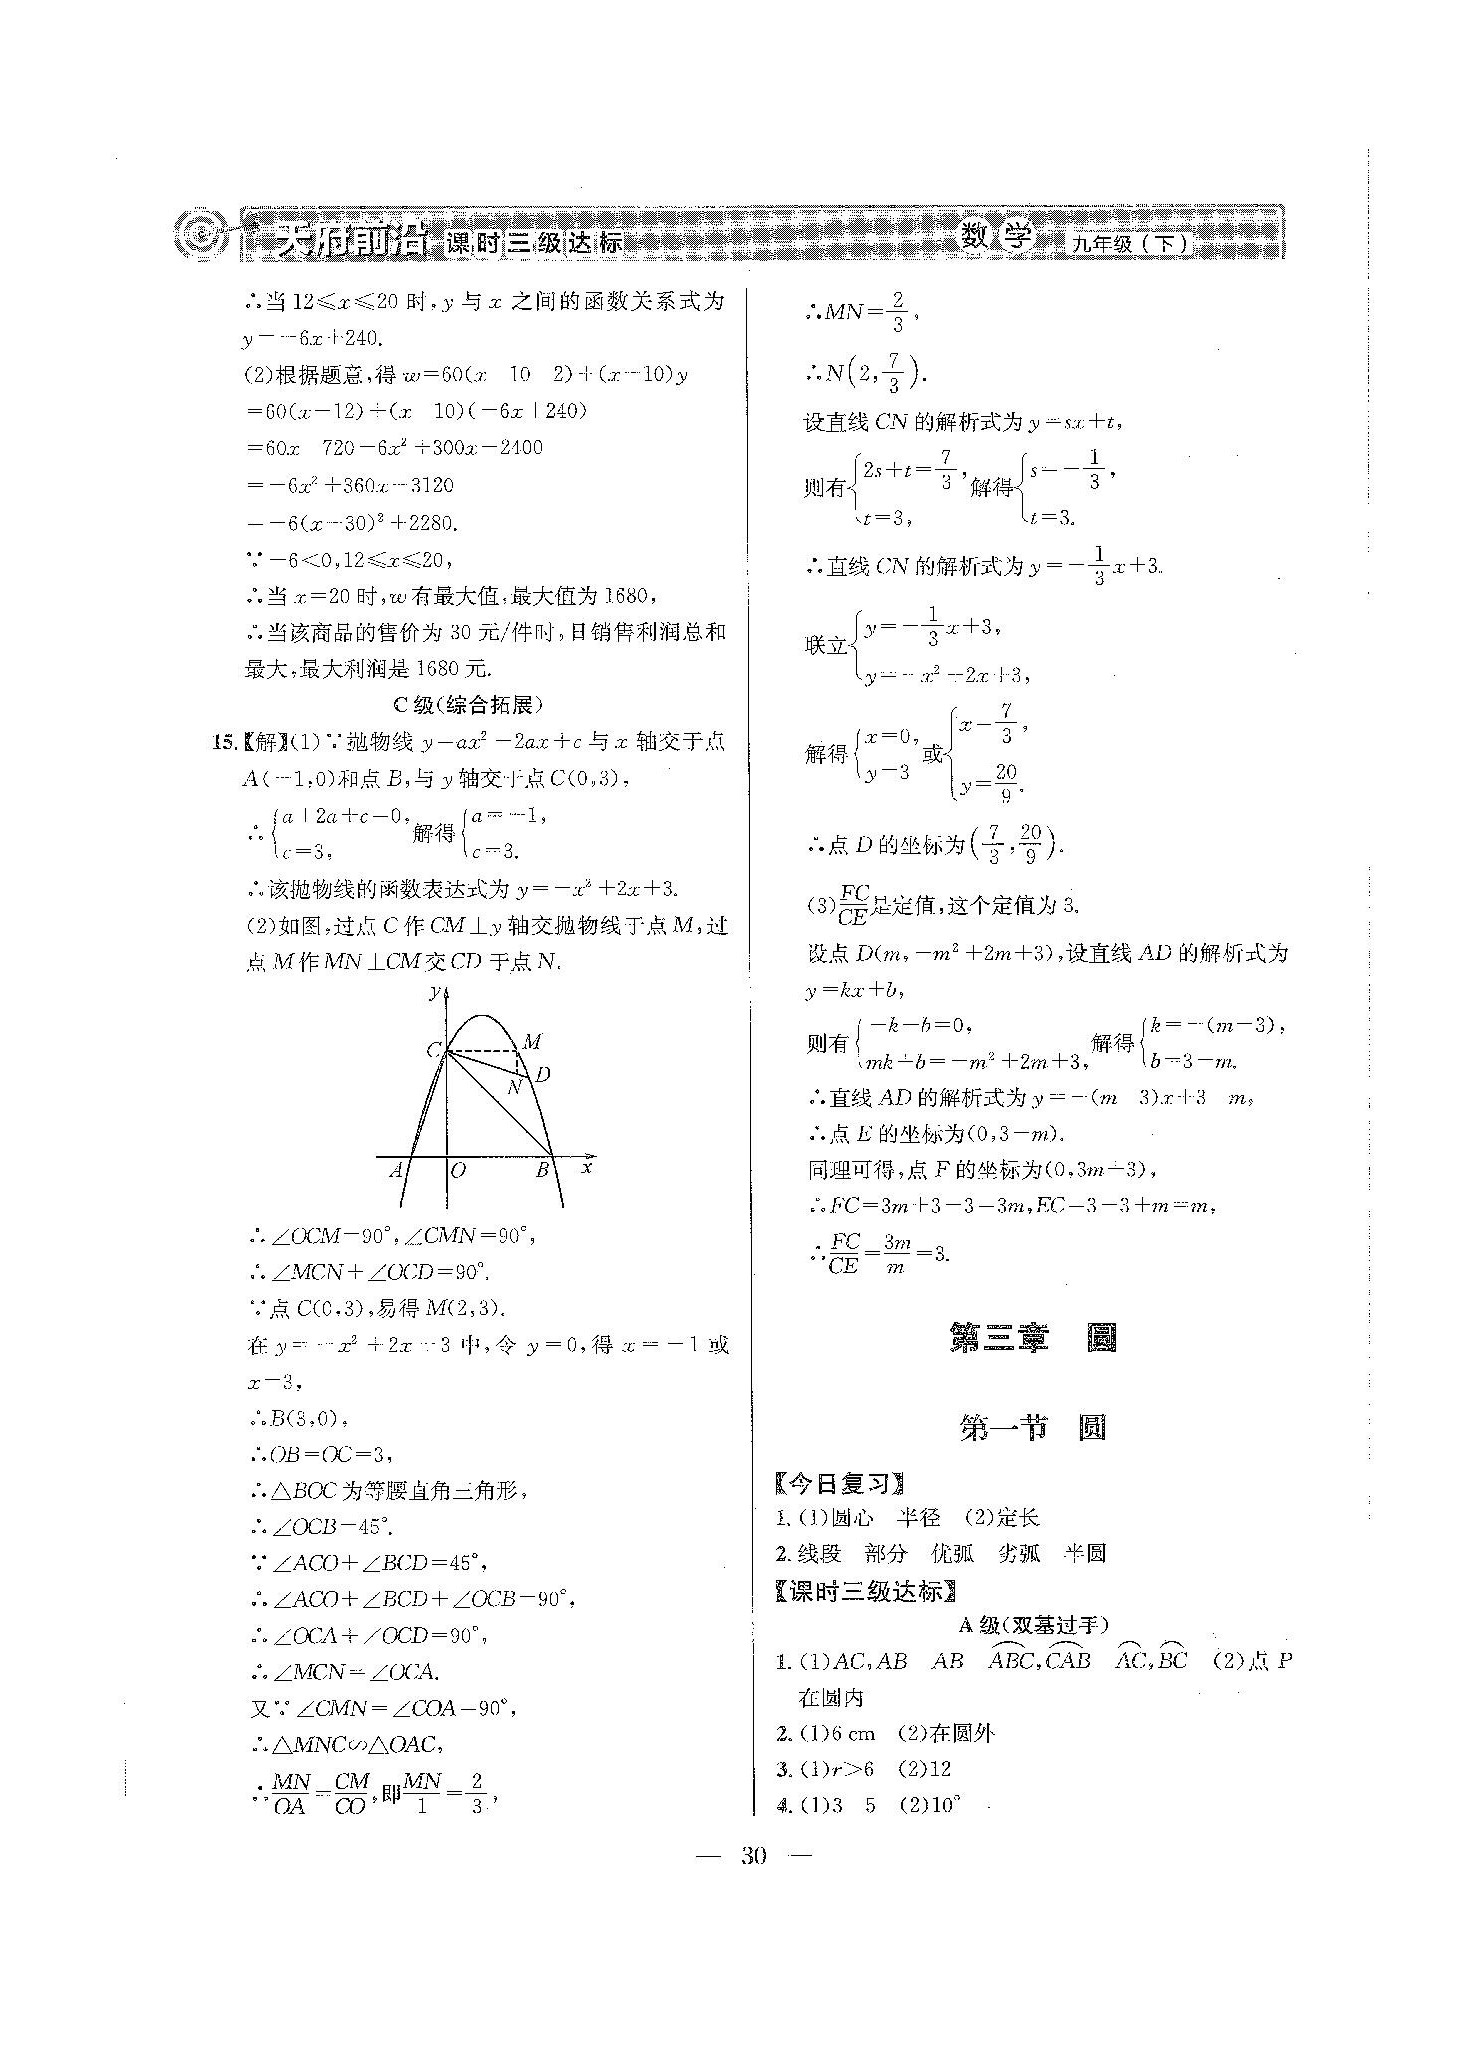 天府前沿 课时三级达标 数学 九年级(下)
∴当12≤x≤20时,y与x之间的函数关系式为
y=-6x+240.
(2)根据题意,得w=60(x-10-2)+(x-10)y
=60(x-12)+(x-10)(-6x+240)
=60x-720-6x²+300x-2400
=-6x²+360x-3120
=-6(x-30)²+2280.
∵-6<0,12≤x≤20,
∴当x=20时,w有最大值,最大值为1680,
∴当该商品的售价为30元/件时,日销售利润总和
最大,最大利润是1680元.
C级(综合拓展)
15.【解】(1)∵抛物线y=ax²-2ax+c与x轴交于点
A(-1,0)和点B,与y轴交于点C(0,3),
∴{a+2a+c=0, c=3, 解得{a=-1, c=3.
∴该抛物线的函数表达式为y=-x²+2x+3.
(2)如图,过点C作CM⊥y轴交抛物线于点M,过
点M作MN⊥CM交CD于点N.
y
C M
N D
A O B x
∴∠OCM=90°,∠CMN=90°,
∴∠MCN+∠OCD=90°.
∵点C(0,3),易得M(2,3).
在y=-x²+2x+3中,令y=0,得x=-1或
x=3,
∴B(3,0),
∴OB=OC=3,
∴△BOC为等腰直角三角形,
∴∠OCB=45°.
∵∠ACO+∠BCD=45°,
∴∠ACO+∠BCD+∠OCB=90°,
∴∠OCA+∠OCD=90°,
∴∠MCN=∠OCA.
又∵∠CMN=∠COA=90°,
∴△MNC∽△OAC,
∴MN/OA=CM/CO,即MN/1=2/3,
∴MN=2/3,
∴N(2,7/3).
设直线CN的解析式为y=sx+t,
则有{2s+t=7/3, t=3, 解得{s=-1/3, t=3.
∴直线CN的解析式为y=-1/3x+3.
联立{y=-1/3x+3, y=-x²+2x+3,
解得{x=0, y=3 或{x=7/3, y=20/9.
∴点D的坐标为(7/3,20/9).
(3)FC/CE是定值,这个定值为3.
设点D(m,-m²+2m+3),设直线AD的解析式为
y=kx+b,
则有{-k+b=0, mk+b=-m²+2m+3, 解得{k=-(m-3), b=3-m.
∴直线AD的解析式为y=-(m-3)x+3-m,
∴点E的坐标为(0,3-m).
同理可得,点F的坐标为(0,3m+3),
∴FC=3m+3-3=3m,EC=3-3+m=m,
∴FC/CE=3m/m=3.
第三章 圆
第一节 圆
【今日复习】
1.(1)圆心 半径 (2)定长
2.线段 部分 优弧 劣弧 半圆
【课时三级达标】
A级(双基过手)
1.(1)AC,AB AB ABC,CAB AC,BC (2)点P
在圆内
2.(1)6 cm (2)在圆外
3.(1)r>6 (2)12
4.(1)3 5 (2)10°
— 30 —